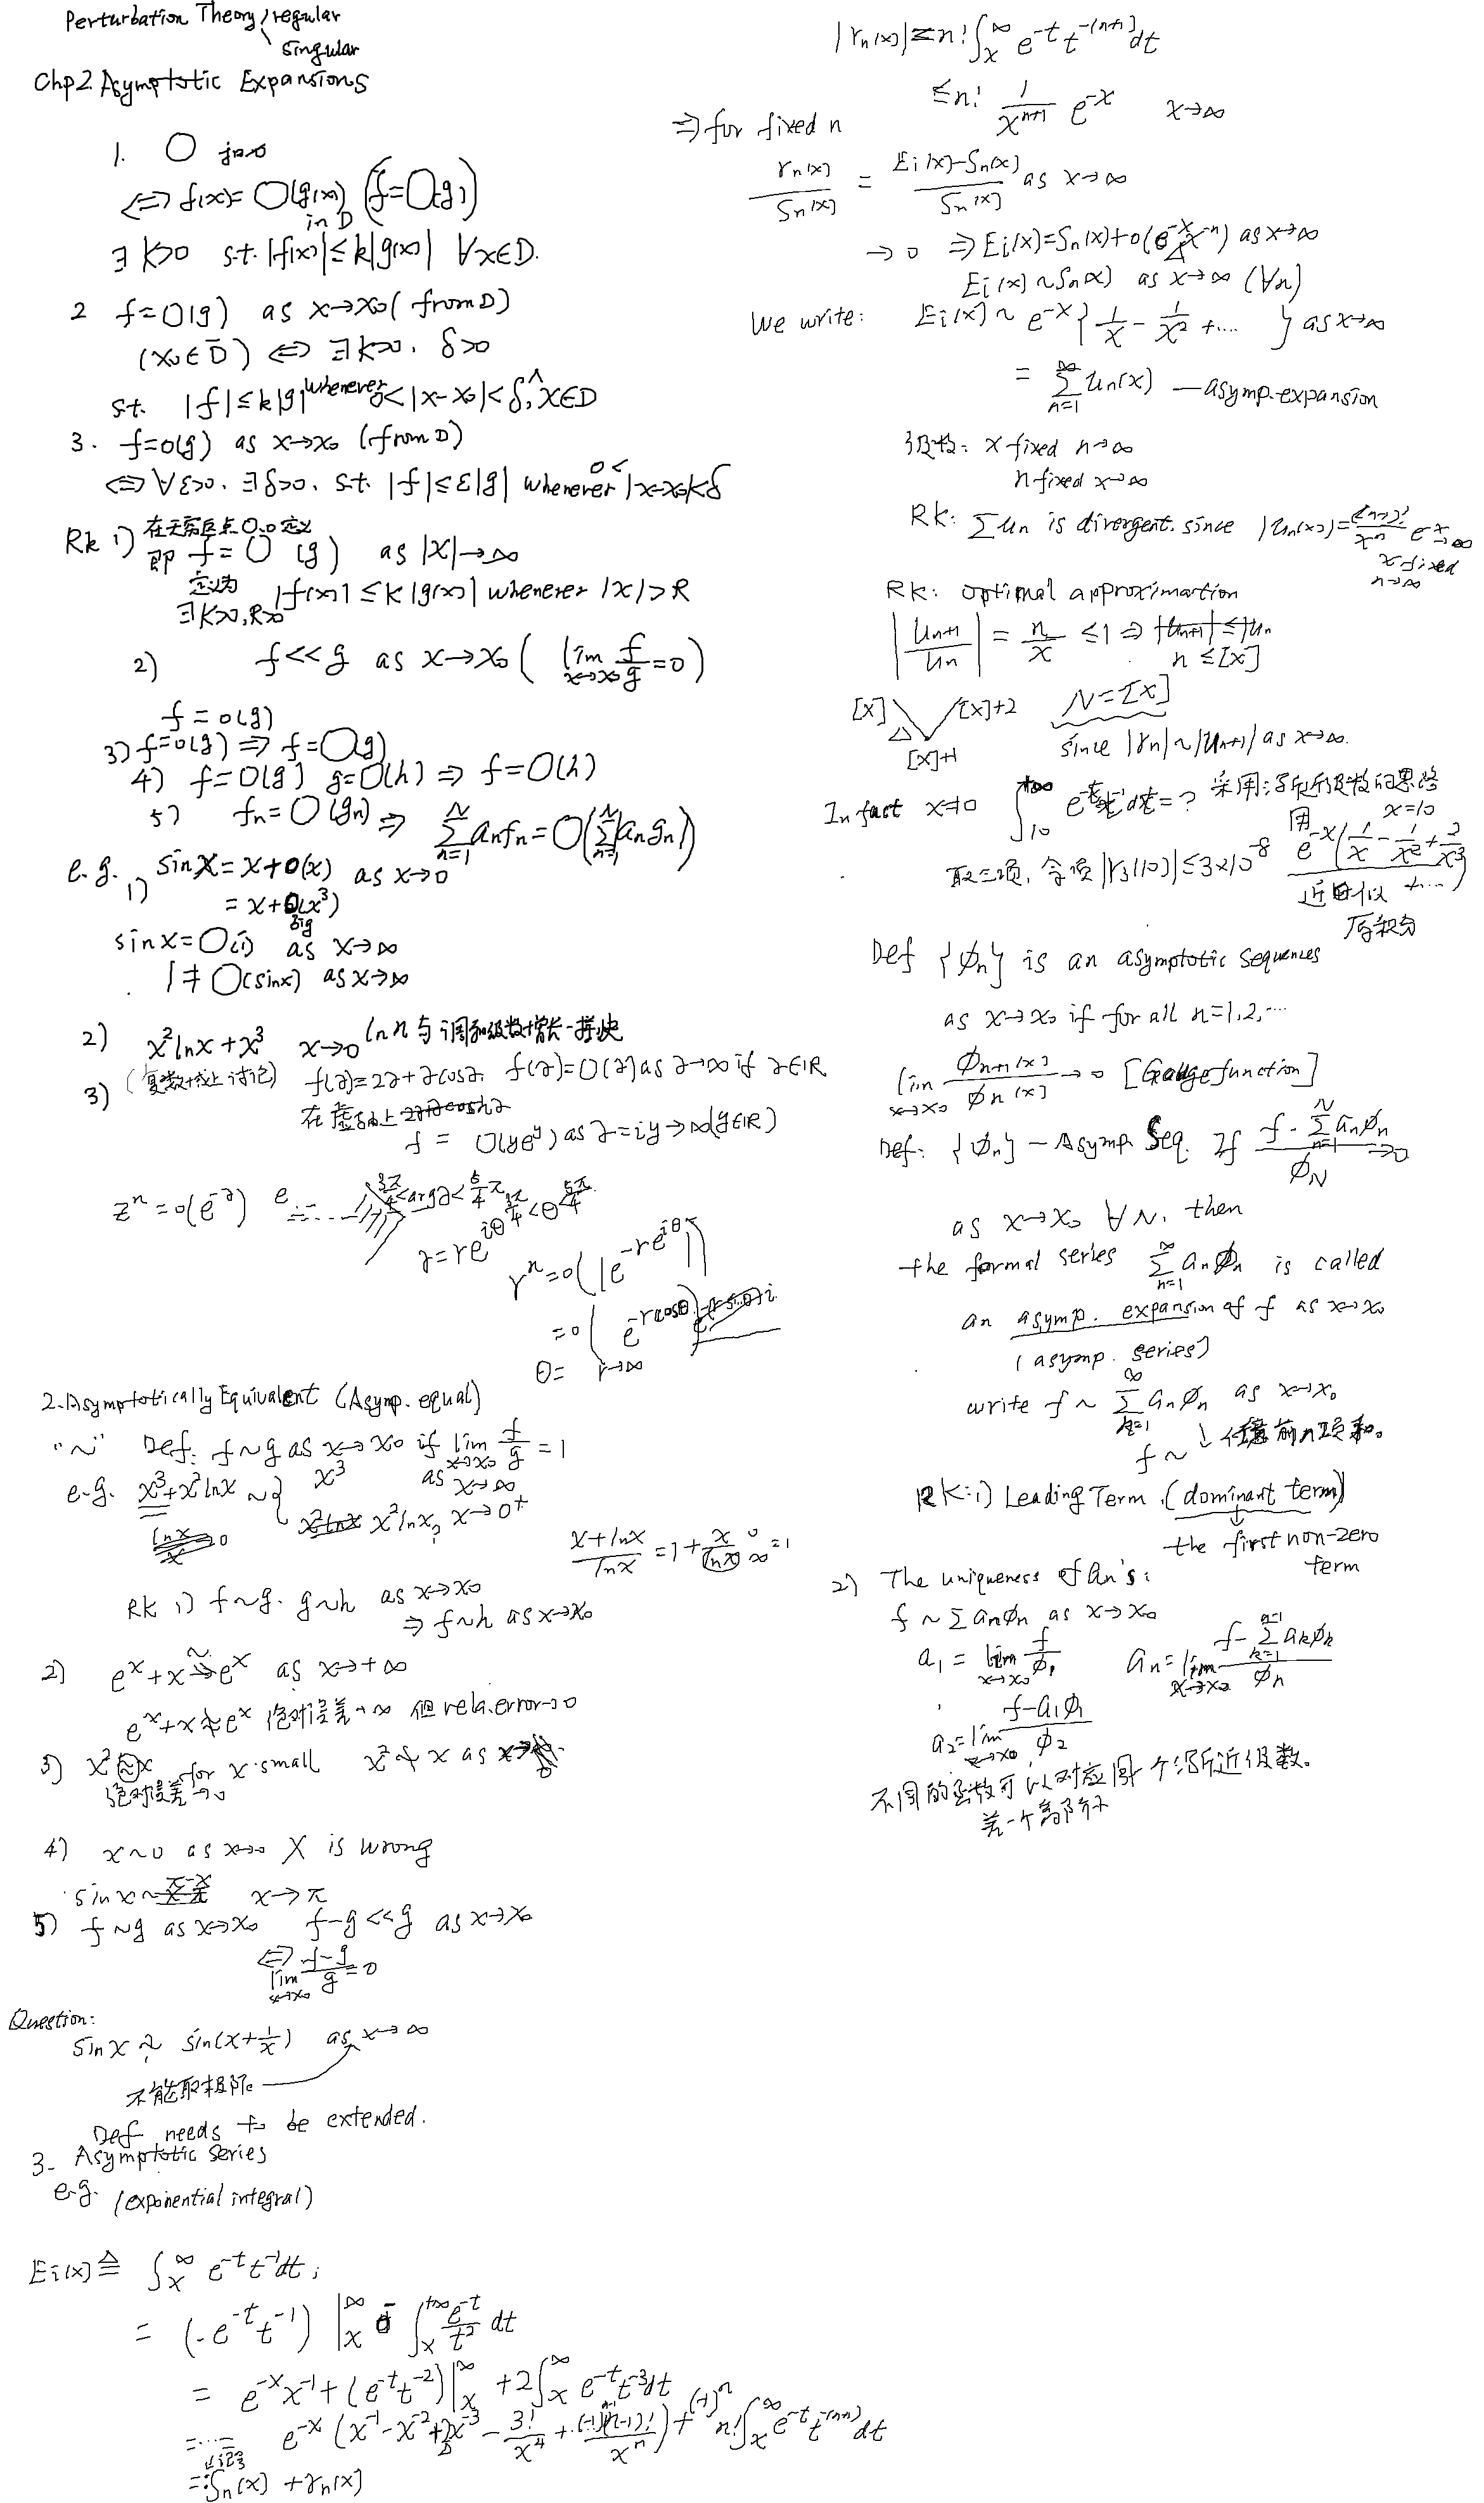 Perturbation Theory regular
singular
Chp2. Asymptotic Expansions
1. O
⇔ f(x) = O(g(x)) (f = O(g))
in D
∃ k>0 s.t. |f(x)| ≤ k|g(x)| ∀x∈D.
2 f = O(g) as x→x₀ (from D)
(x₀∈D̄) ⇔ ∃ k>0, δ>0
s.t. |f| ≤ k|g| whenever 0<|x-x₀|<δ, x∈D
3. f=o(g) as x→x₀ (from D)
⇔ ∀ε>0, ∃δ>0, s.t. |f| ≤ ε|g| whenever 0<|x-x₀|<δ
Rk 1) 在无穷远点O,o定义
即 f = O(g) as |x|→∞
定义为 |f(x)| ≤ k|g(x)| whenever |x|>R
∃k>0, R>0
2) f<<g as x→x₀ (lim_{x→x₀} f/g = 0)
f = o(g)
3) f=o(g) ⇒ f=O(g)
4) f=O(g) g=O(h) ⇒ f=O(h)
5) fn = O(gn) ⇒ ∑_{n=1}^{N} an fn = O(∑_{n=1}^{N} |an gn|)
e.g. 1) sin x = x + o(x) as x→0
= x + O(x³)
big
sin x = O(1) as x→∞
1 ≠ O(sin x) as x→∞
2) x² ln x + x³ x→0 ln n 与调和级数增长一样快
3) (复数域上讨论) f(z) = 2z + z cos z, f(z) = O(z) as z→∞ if z∈ℝ
在虚轴上
f = O(ye^y) as z = iy→∞ (y∈ℝ)
z^n = o(e^{-z}) e 3π/4 < arg z < 5/4 π 3π/4 < θ < 5π/4
z = re^{iθ}
r^n = o(|e^{-re^{iθ}}|)
= o(e^{-r cosθ}
θ= r→∞
2. Asymptotically Equivalent (Asymp. equal)
"~" Def: f~g as x→x₀ if lim_{x→x₀} f/g = 1
e.g. x³ + x² ln x ~ { x³ as x→∞
x² ln x, x→0⁺
ln x / x → 0
(x + ln x)/ln x = 1 + x/ln x 0/∞ = 1
Rk 1) f~g. g~h as x→x₀
⇒ f~h as x→x₀
2) e^x + x ~ e^x as x→+∞
e^x + x ≉ e^x 绝对误差→∞ 但 rela. error→0
3) x² ≈ x for x small x² ≁ x as x→0
绝对误差→0
4) x~0 as x→0 X is wrong
sin x ~ π-x x→π
5) f~g as x→x₀ f-g<<g as x→x₀
⇔ lim_{x→x₀} (f-g)/g = 0
Question:
sin x ~ sin(x + 1/x) as x→∞
?
不能取极限
Def needs to be extended.
3. Asymptotic series
e.g. (exponential integral)
Ei(x) ≜ ∫_x^∞ e^{-t} t^{-1} dt;
= (-e^{-t} t^{-1}) |_x^∞ - ∫_x^{+∞} e^{-t}/t² dt
= e^{-x} x^{-1} + (e^{-t} t^{-2}) |_x^∞ + 2∫_x^∞ e^{-t} t^{-3} dt
= ... = e^{-x} (x^{-1} - x^{-2} + 2x^{-3} - 3!/x⁴ + (-1)^{n-1}(n-1)!/x^n) + (-1)^n n! ∫_x^∞ e^{-t} t^{-(n+1)} dt
=: Sn(x) + rn(x)
|rn(x)| = n! ∫_x^∞ e^{-t} t^{-(n+1)} dt
≤ n! 1/x^{n+1} e^{-x} x→∞
⇒ for fixed n
rn(x)/Sn(x) = (Ei(x) - Sn(x))/Sn(x) as x→∞
→ 0 ⇒ Ei(x) = Sn(x) + o(e^{-x} x^{-n}) as x→∞
Ei(x) ~ Sn(x) as x→∞ (∀n)
We write: Ei(x) ~ e^{-x} { 1/x - 1/x² + .... } as x→∞
= ∑_{n=1}^∞ un(x) — asymp. expansion
级数: x fixed n→∞
n fixed x→∞
Rk: ∑un is divergent. since |un(x)| = (n-1)!/x^n e^{-x} → ∞
x fixed
n→∞
Rk: optimal approximartion
|u_{n+1}/u_n| = n/x ≤ 1 ⇒ |u_{n+1}| ≤ |un
n ≤ [x]
[x] [x]+2 N = [x]
[x]+1 since |rn| ~ |u_{n+1}| as x→∞.
In fact x=10 ∫_{10}^{+∞} e^{-t} t^{-1} dt = ? 采用渐近级数的思路
x=10
取三项, 余项 |r₃(10)| ≤ 3×10^{-8} 用 e^{-x}(1/x - 1/x² + 2/x³ + ...)
近似
原积分
Def {φn} is an asymptotic sequences
as x→x₀ if for all n=1,2,...
lim_{x→x₀} φ_{n+1}(x)/φn(x) → 0 [Gauge function]
Def: {φn} — Asymp. Seq. If (f - ∑_{n=1}^N an φn)/φN → 0
as x→x₀ ∀N, then
the formal series ∑_{n=1}^∞ an φn is called
an asymp. expansion of f as x→x₀
(asymp. series)
write f ~ ∑_{n=1}^∞ an φn as x→x₀
f ~ 任意前n项和。
Rk: 1) Leading Term. (dominant term)
the first non-zero
term
2) The uniqueness of an's:
f ~ ∑an φn as x→x₀
a₁ = lim_{x→x₀} f/φ₁ an = lim_{x→x₀} (f - ∑_{k=1}^{n-1} ak φk)/φn
a₂ = lim_{x→x₀} (f - a₁φ₁)/φ₂
不同的函数可以对应同一个渐近级数。
差一个高阶